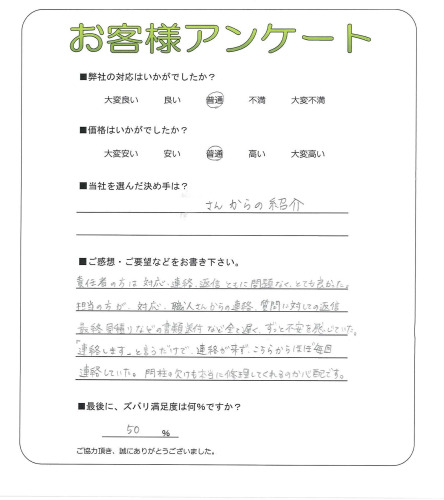 お客様アンケート
■弊社の対応はいかがでしたか？
大変良い 良い 普通 不満 大変不満
■価格はいかがでしたか？
大変安い 安い 普通 高い 大変高い
■当社を選んだ決め手は？
さんからの紹介
■ご感想・ご要望などをお書き下さい。
責任者の方は対応、連絡、返信ともに問題なく、とても良かった。
担当の方が、対応、職人さんからの連絡、質問に対しての返信
最終見積りなどの書類送付など全て遅く、ずっと不安を感じていた。
「連絡します」と言うだけで、連絡が来ず、こちらからほぼ毎回
連絡していた。門柱の欠けも本当に修理してくれるのか心配です。
■最後に、ズバリ満足度は何%ですか？
50 %
ご協力頂き、誠にありがとうございました。